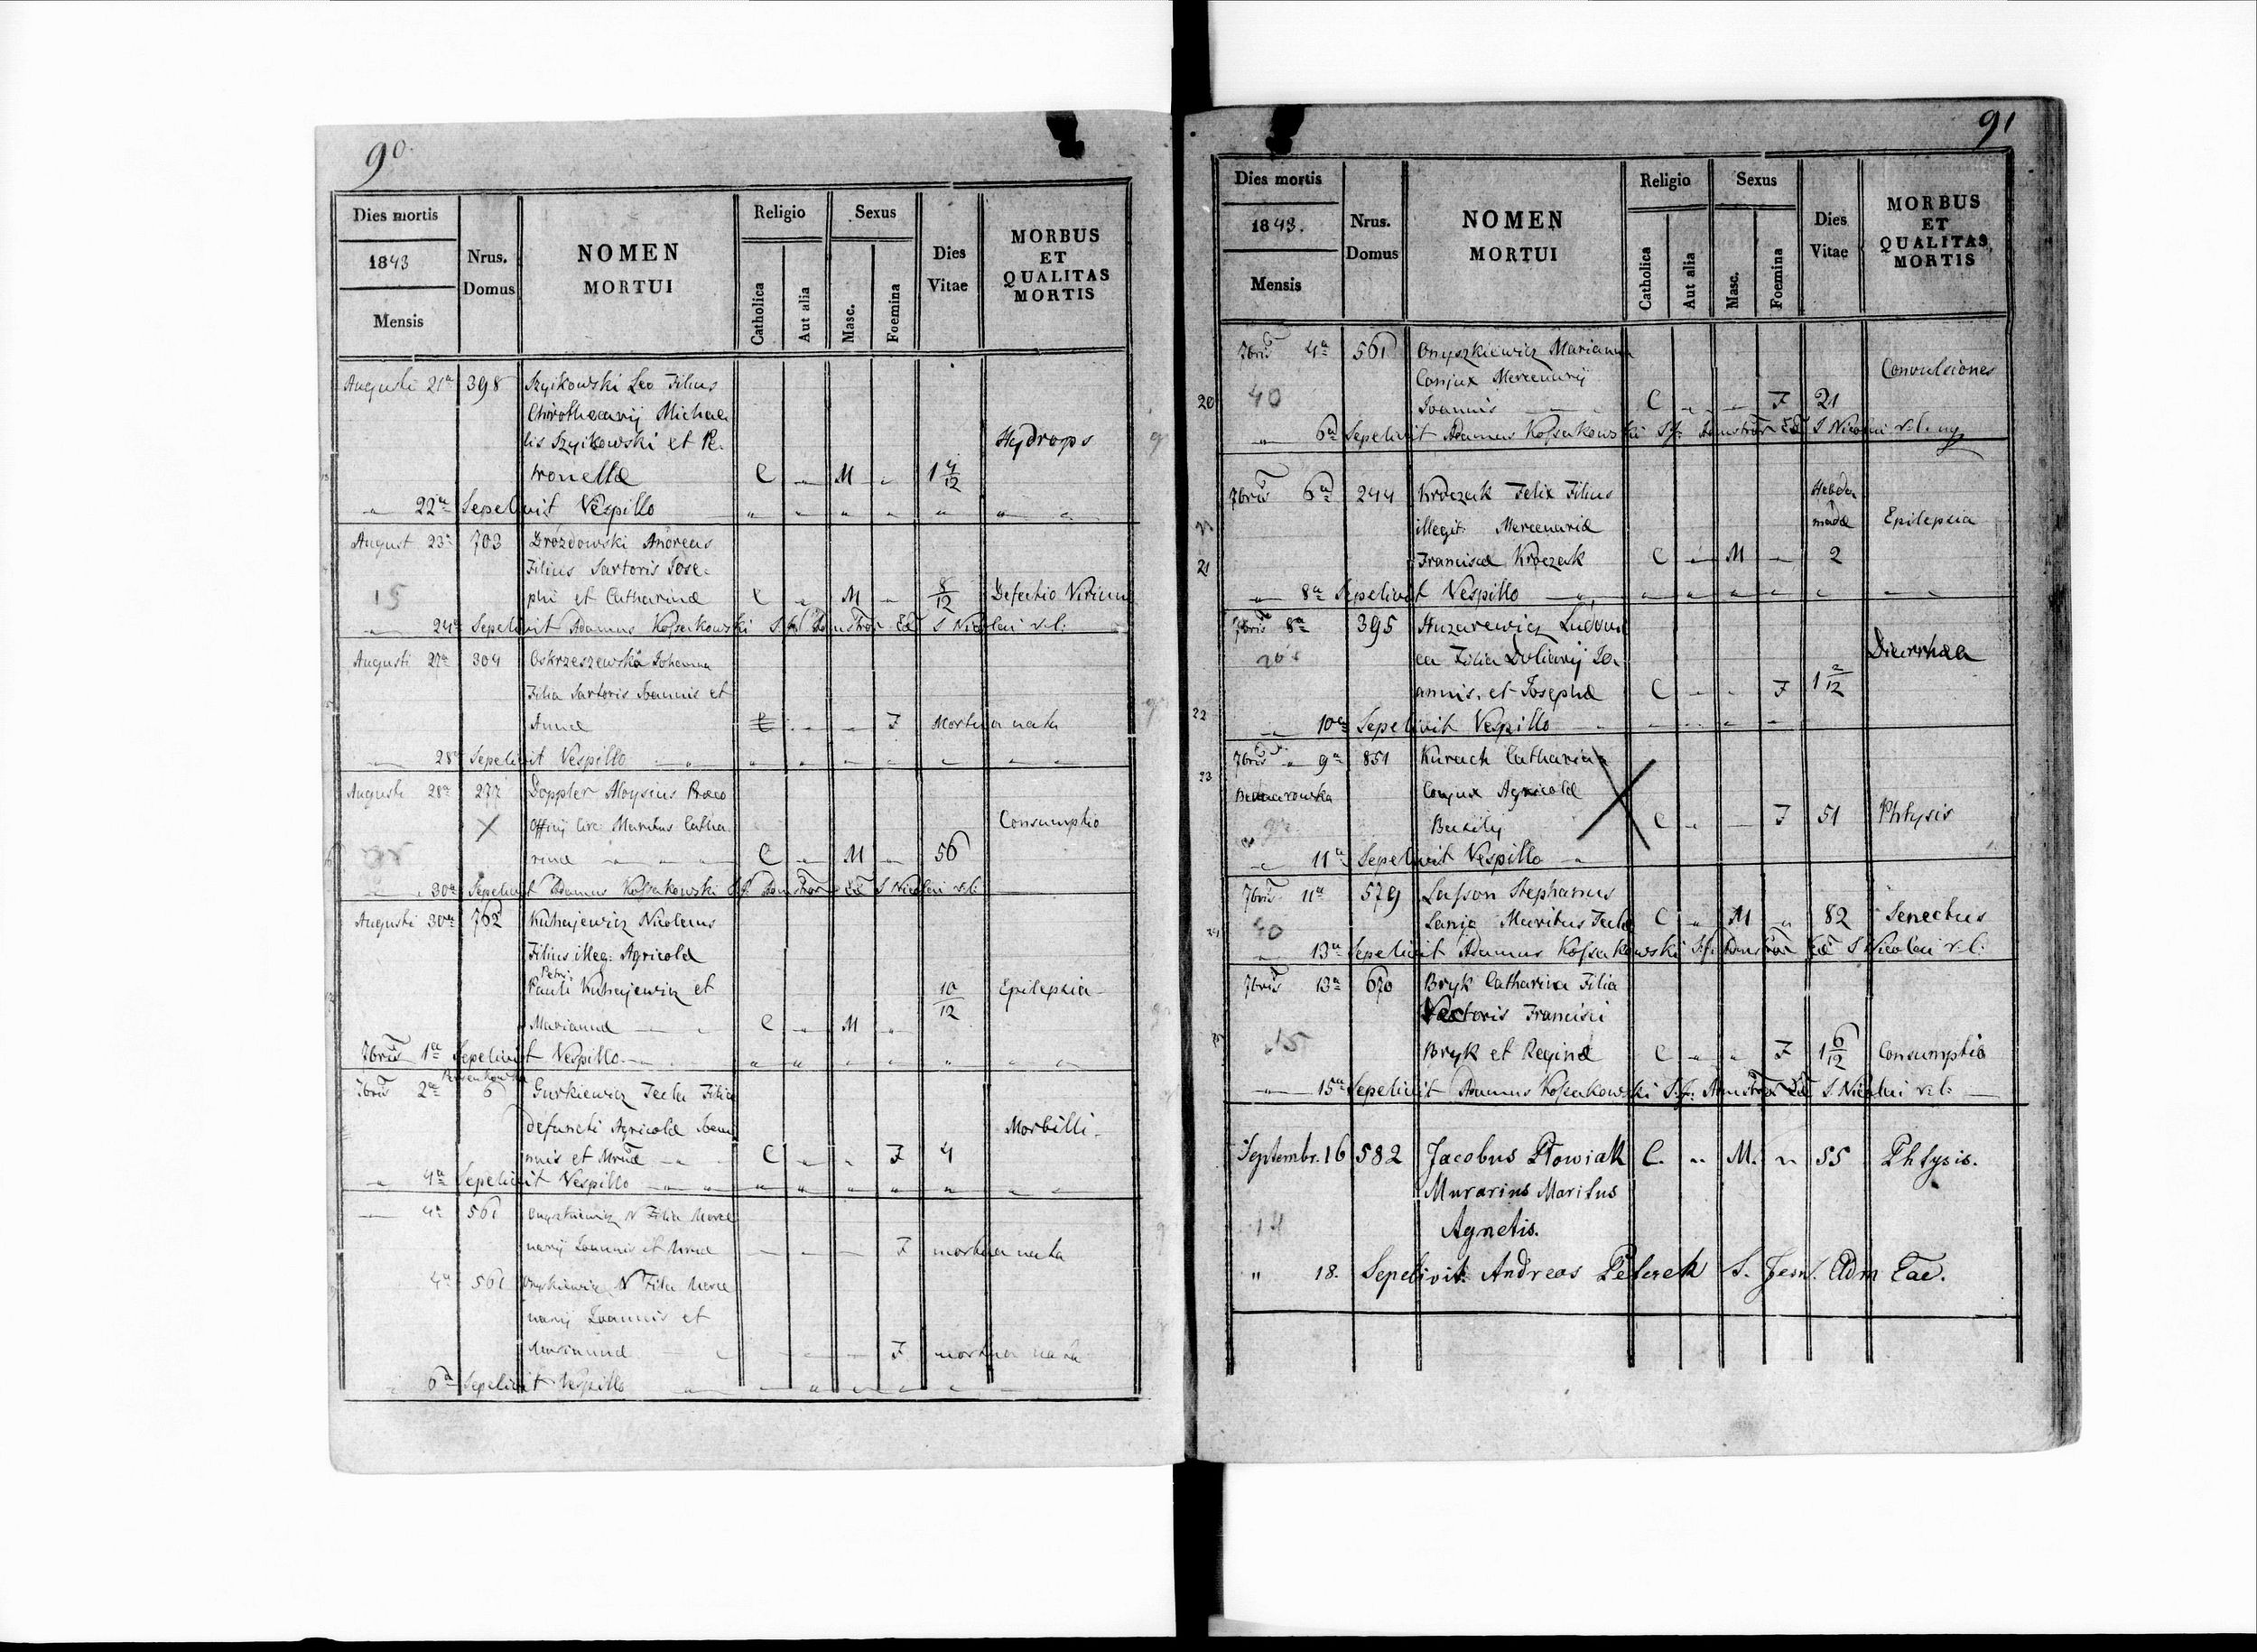 90
Dies mortis
1843
Mensis
Nrus. Domus
NOMEN MORTUI
Religio
Catholica
Aut alia
Sexus
Masc.
Foemina
Dies Vitae
MORBUS ET QUALITAS MORTIS
Augusti 21a 398 Szyikowski Leo Filius
Chirothecarij Michae
lis Szyikowski et Pe-
tronellæ C „ M „ 1 4/12 Hydrops
„ 22a Sepelivit Vespillo „ „ „ „ „ „ „
August 23a 703 Drozdowski Andreas
Filius Sartoris Jose-
15 phi et Catharinæ C „ M „ 8/12 Defectio Virium
„ 24a Sepelivit Adamus Kossakowski S. Nicolai r.l.
Augusti 27a 304 Oskrzeszewska Johanna
Filia Sartoris Joannis et
Annæ C „ „ F Mortua nata
„ 28a Sepelivit Vespillo „ „ „ „ „ „ „
Augusti 28a 277 Doppler Aloysius
X Maritus Catha-
rinæ C „ M „ 56 Consumptio
„ 30a Sepelivit Adamus Kossakowski S. Nicolai r.l.
Augusti 30a 762 Kuhajewicz Nicolaus
Filius illeg. Agricolæ
Petri
Pauli Kuhajewicz et
Mariannæ C „ M „ 10/12 Epilepsia
7bris 1a Sepelivit Vespillo „ „ „ „ „ „ „
7bris 2a 6 Gurkiewicz Tecla Filia
defuncti Agricolæ Joan
nis et Mnæ C „ „ F 4 Morbilli
„ 4a Sepelivit Vespillo „ „ „ „ „ „ „
„ 4a 561 N Filia Merce
narij Joannis et Mnæ F mortua nata
4a 561 N Filia Merce
narij Joannis et
Mariannæ F mortua nata
„ 6a Sepelivit Vespillo
91
Dies mortis
1843.
Mensis
Nrus. Domus
NOMEN MORTUI
Religio
Catholica
Aut alia
Sexus
Masc.
Foemina
Dies Vitae
MORBUS ET QUALITAS MORTIS
7bris 4a 561 Onyszkiewicz Marianna
Conjux Mercenarij
20 40 Joannis C „ „ F 21 Convulsiones
„ 6a Sepelivit Adamus Kossakowski S. Nicolai r.l.
7bris 6a 244 Kroczek Felix Filius
illegit. Mercenariæ
21 Franciscæ Kroczek C „ M „ Hebdo-
madæ 2 Epilepsia
„ 8a Sepelivit Vespillo „ „ „ „ „ „ „
7bris 8a 395 Huzarewicz Ludovi
ca Filia Doliarij Jo-
annis et Josephæ C „ „ F 1 2/12 Diarrhæa
22 „ 10a Sepelivit Vespillo „ „ „ „
7bris 9a 851 Kurach Catharina
23 Bednarowska Conjux Agricolæ
Basilij C „ „ F 51 Phtysis
„ 11a Sepelivit Vespillo „
7bris 11a 579 Lasson Stephanus
40 Lanio Maritus Teclæ C „ M „ 82 Senectus
„ 13a Sepelivit Adamus Kossakowski S. Nicolai r.l.
7bris 13a 670 Bryk Catharina Filia
Francisci
15 Bryk et Reginæ C „ „ F 1 6/12 Consumptio
„ 15a Sepelivit Adamus Kossakowski S. Nicolai r.l.
Septembr. 16 582 Jacobus Plowiak C. „ M. „ 55 Phtysis.
Murarius Maritus
14 Agnetis.
„ 18. Sepelivit Andreas Peterek S. Adm Eae.